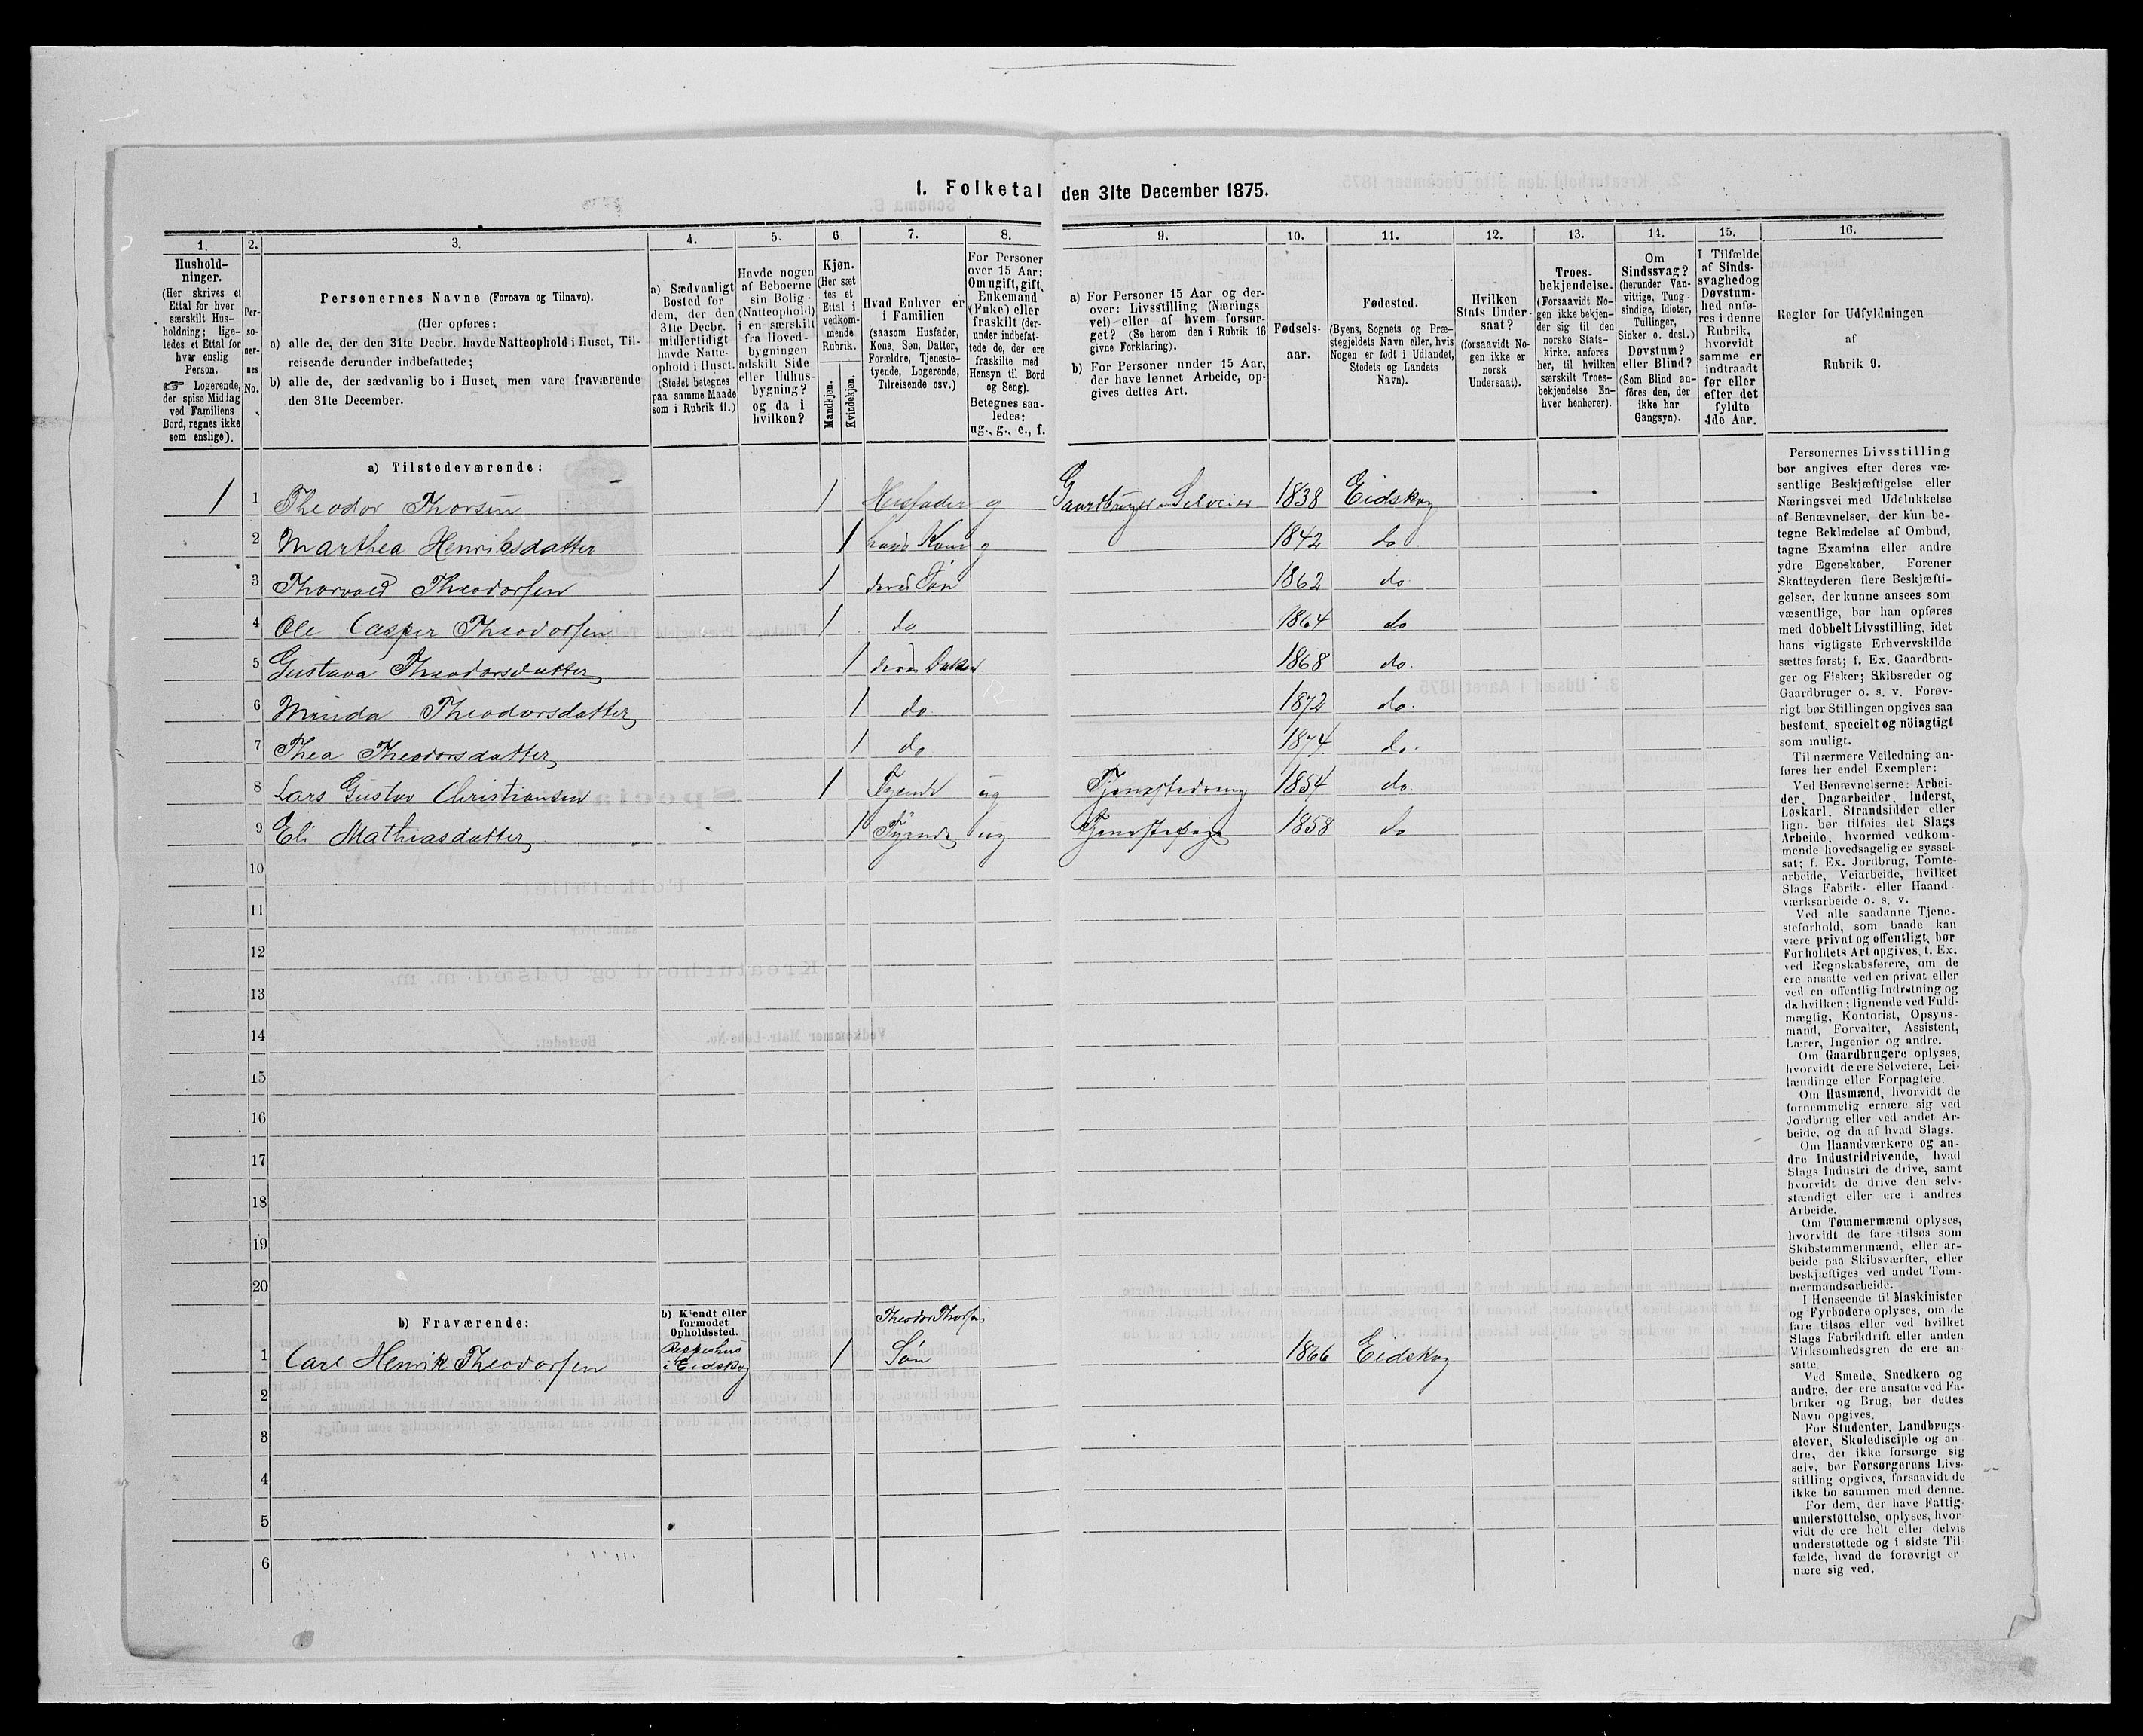 1. Folketal den 31te December 1875.
1.
2.
3.
4.
5.
6.
7.
8.
9.
10.
11.
12.
13.
14.
15.
16.
Hushold-
ninger.
(Her skrives et
Ettal for hver
særskilt Hus-
holdning; lige-
ledes et Ettal for
hver enslig
Person.
☞ Logerende,
der spise Middag
ved Familiens
Bord, regnes ikke
som enslige).
Per-
so-
ner-
nes
No.
Personernes Navne (Fornavn og Tilnavn).
(Her opføres:
a) alle de, der den 31te Decbr. havde Natteophold i Huset, Til-
reisende derunder indbefattede;
b) alle de, der sædvanlig bo i Huset, men vare fraværende
den 31te December.
a) Sædvanligt
Bosted for
dem, der den
31te Decbr.
midlertidigt
havde Natte-
ophold i Huset.
(Stedet betegnes
paa samme Maade
som i Rubrik 11.)
Havde nogen
af Beboerne
sin Bolig
(Natteophold)
i en særskilt
fra Hoved-
bygningen
adskilt Side
eller Udhus-
bygning?
og da i
hvilken?
Kjøn.
(Her sæt
tes et
Ettal i
vedkom-
mende
Rubrik.
Mandkjøn.
Kvindekjøn.
Hvad Enhver er
i Familien
(saasom Husfader,
Kone, Søn, Datter,
Forældre, Tjeneste-
tyende, Logerende,
Tilreisende osv.)
For Personer
over 15 Aar:
Om ugift, gift,
Enkemand
(Enke) eller
fraskilt (der-
under indbefat-
tede de, der ere
fraskilte med
Hensyn til Bord
og Seng).
Betegnes saa-
ledes:
ug., g., e., f.
a) For Personer 15 Aar og der-
over: Livsstilling (Nærings
vei) eller af hvem forsør-
get? (Se herom den i Rubrik 16
givne Forklaring).
b) For Personer under 15 Aar,
der have lønnet Arbeide, op-
gives dettes Art.
Fødsels-
aar.
Fødested.
(Byens, Sognets og Præ-
stegjeldets Navn eller, hvis
Nogen er født i Udlandet,
Stedets og Landets
Navn).
Hvilken
Stats Under-
saat?
(forsaavidt No-
gen ikke er
norsk
Undersaat).
Troes-
bekjendelse.
(Forsaavidt No-
gen ikke bekjen-
der sig til den
norske Stats-
kirke, anføres
her, til hvilken
særskilt Troes-
bekjendelse En-
hver henhører).
Om
Sindssvag?
(herunder Van-
vittige, Tung-
sindige, Idioter,
Tullinger,
Sinker o. desl.)
Døvstum?
eller Blind?
(Som Blind an-
føres den, der
ikke har
Gangsyn).
I Tilfælde
af Sinds-
svaghed og
Døvstum-
hed anfø-
res i denne
Rubrik,
hvorvidt
samme er
indtraadt
før eller
efter det
fyldte
4de Aar.
Regler for Udfyldningen
af
Rubrik 9.
a) Tilstedeværende:
1 1 Theodor Thorsen 1 Husfader g Gaardbruger Selveier 1838 Eidskog
2 Marthea Henriksdatter 1 hans Kone g 1842 do
3 Thorvald Theodorsen 1 deres Søn 1862 do
4 Ole Casper Theodorsen 1 do 1864 do
5 Gustava Theodorsdatter 1 deres Datter 1868 do.
6 Minda Theodorsdatter 1 do 1872 do.
7 Thea Theodorsdatter 1 do 1874 do.
8 Lars Gustav Christiansen 1 Tyende ug Tjenestedreng 1854 do.
9 Eli Mathiasdatter 1 Tyende ug Tjenestepige 1858 do
10
11
12
13
14
15
16
17
18
19
20
b) Fraværende:
b) Kjendt eller
formodet
Opholdssted.
Theodor Thorsens
1 Carl Henrik Theodorsen i Eidskog 1 Søn 1866 Eidskog
2
3
4
5
6
Personernes Livsstilling
bør angives efter deres væ-
sentlige Beskjæftigelse eller
Næringsvei med Udelukkelse
af Benævnelser, der kun be-
tegne Beklædelse af Ombud,
tagne Examina eller andre
ydre Egenskaber. Forener
Skatteyderen flere Beskjæfti-
gelser, der kunne ansees som
væsentlige, bør han opføres
med dobbelt Livsstilling, idet
hans vigtigste Erhvervskilde
sættes først; f. Ex. Gaardbru-
ger og Fisker; Skibsreder og
Gaardbruger o. s. v. Forøv-
rigt bør Stillingen opgives saa
bestemt, specielt og nöiagtigt
som muligt.
Til nærmere Veiledning an-
føres her endel Exempler:
Ved Benævnelserne: Arbei-
der, Dagarbeider, Inderst,
Løskarl, Strandsidder eller
lign. bør tilføies det Slags
Arbeide, hvormed vedkom-
mende hovedsagelig er syssel-
sat; f. Ex. Jordbrug, Tomte-
arbeide, Veiarbeide, hvilket
Slags Fabrik- eller Haand-
værksarbeide o. s. v.
Ved alle saadanne Tjene-
steforhold, som baade kan
være privat og offentligt, bør
Forholdets Art opgives, t. Ex.
ved Regnskabsførere, om de
ere ansatte ved en privat eller
ved en offentlig Indretning og
da hvilken; lignende ved Fuld-
mægtig, Kontorist, Opsyns-
mand, Forvalter, Assistent,
Lærer, Ingeniør og andre.
Om Gaardbrugere oplyses,
hvorvidt de ere Selveiere, Lei-
lændinge eller Forpagtere.
Om Husmænd, hvorvidt de
fornemmelig ernære sig ved
Jordbrug eller ved andet Ar-
beide, og da af hvad Slags.
Om Haandværkere og an-
dre Industridrivende, hvad
Slags Industri de drive, samt
hvorvidt de drive den selv-
stændigt eller ere i andres
Arbeide.
Om Tømmermænd oplyses,
hvorvidt de fare tilsøs som
Skibstømmermænd, eller ar-
beide paa Skibsværfter, eller
beskjæftiges ved andet Tøm-
mermandsarbeide.
I Henseende til Maskinister
og Fyrbødere oplyses, om de
fare tilsøs eller ved hvilket
Slags Fabrikdrift eller anden
Virksomhedsgren de ere an-
satte.
Ved Smede, Snedkere og
andre, der ere ansatte ved Fa-
briker og Brug, bør dettes
Navn opgives.
For Studenter, Landbrugs-
elever, Skoledisciple og an
dre, der ikke forsørge sig
selv, bør Forsørgerens Livs-
stilling opgives, forsaavidt de
ikke bo sammen med denne.
For dem, der have Fattig-
understøttelse, oplyses, hvor
vidt de ere helt eller delvis
understøttede og i sidste Til-
fælde, hvad de forøvrigt er
nære sig ved.